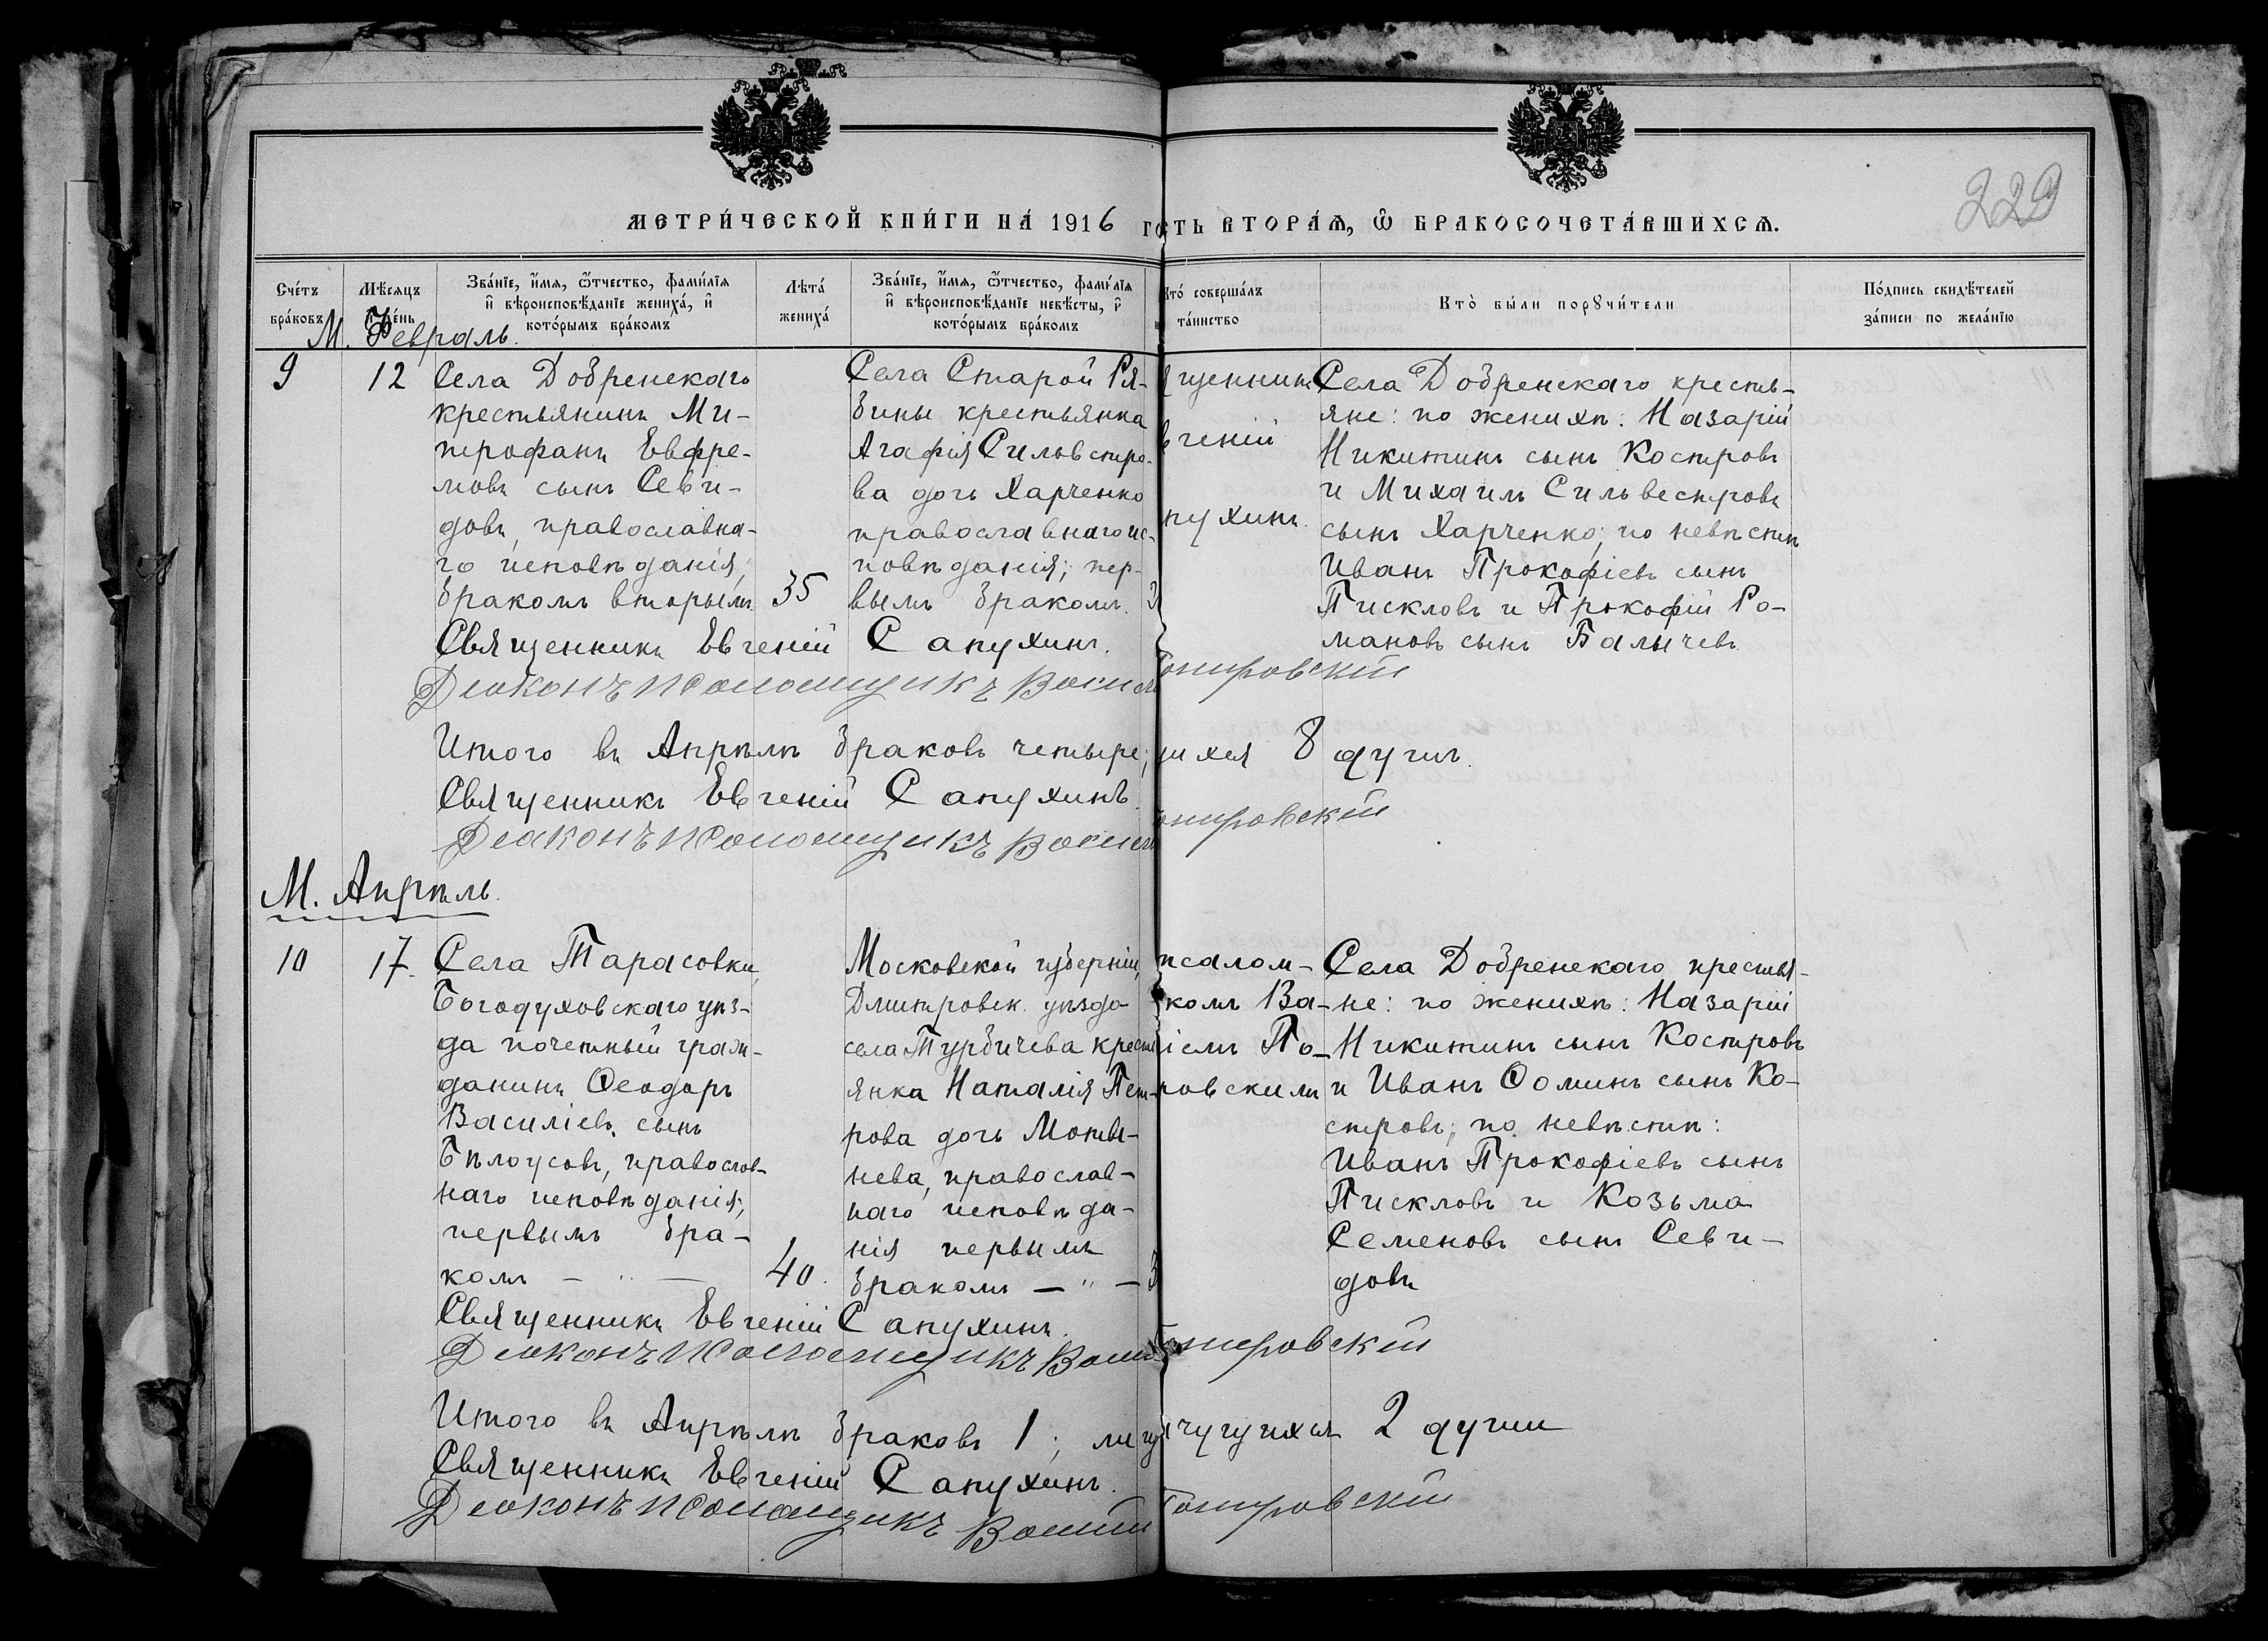 229
МЕТРИ́ЧЕСКОЙ КНИ́ГИ НА́ 1916 ГО
СТЬ ВТОРА́Ѧ, Ѽ БРАКОСОЧЕТА́ВШИХСѦ.
Сче́тъ бра́ковъ
Мѣ́сяцъ и де́нь
Зва́нїе, и҆́мѧ, ѻ҆́тчество, фами́лїѧ и҆ вѣроисповѣ́данїе жениха́, и҆ кото́рымъ бра́комъ
Лѣта́ жениха́
Зва́нїе, и҆́мѧ, ѻ҆́тчество, фами́лїѧ и҆ вѣроисповѣ́данїе невѣ́сты, и҆ кото́рымъ бра́комъ
кто́ соверша́лъ та́инство
Кто̀ бы́ли порꙋчи́тели
По́дпись свидѣ́телей за́писи по жела́нїю
М. Февраль.
9
12
Села Добренскаго
крестьянинъ Ми-
трофанъ Евфре-
мовъ сынъ Севи-
довъ, православна-
го исповѣданія,
бракомъ вторымъ
35
Села Старой Ря-
бины крестьянка
Агафія Сильвстро-
ва дочь Харченко
православнаго ис-
повѣданія; пер-
вымъ бракомъ.
щенникъ
геній
пухинъ.
Села Добренскаго крестья-
яне: по женихѣ: Назарій
Никитинъ сынъ Костровъ
и Михаилъ Сильвестровъ
сынъ Харченко; по невѣстѣ
Иванъ Прокофіевъ сынъ
Пискловъ и Прокофій Ро-
мановъ сынъ Балычевъ
Священникъ Евгеній Сапухинъ.
Діаконъ Псаломщикъ Васил
Покровскій
Итого въ Апрѣлѣ браковъ четыре,
ихся 8 душъ.
Священникъ Евгеній Сапухинъ.
Діаконъ Псаломщикъ Васил
окровскій
М. Апрѣль.
10
17.
Села Тарасовки,
Богодуховскаго уѣз-
да почетный граж-
данинъ Ѳеодоръ
Василіевъ сынъ
Бѣлоусовъ, православ-
наго исповѣданія,
первымъ бра-
комъ — " —
40.
Московской губерніи,
Дмитровск. уѣзда
села Турбичева крестья
янка Наталія Пет-
рова дочь Моты-
нева, православ-
наго исповѣда-
нія первымъ
бракомъ — " —
псалом-
комъ Ва-
іемъ По-
ровскимъ
Села Добренскаго крестья-
не: по женихѣ: Назарій
Никитинъ сынъ Костровъ
и Иванъ Ѳоминъ сынъ Ко-
стровъ; по невѣстѣ:
Иванъ Прокофіевъ сынъ
Пискловъ и Козьма
Семеновъ сынъ Севи-
довъ
Священникъ Евгеній Сапухинъ.
Діаконъ Псаломщикъ Васил
Покровскій
Итого въ Апрѣлѣ браковъ 1; лицъ
чущихся 2 души
Священникъ Евгеній Сапухинъ.
Діаконъ Псаломщикъ Васил
Покровскій